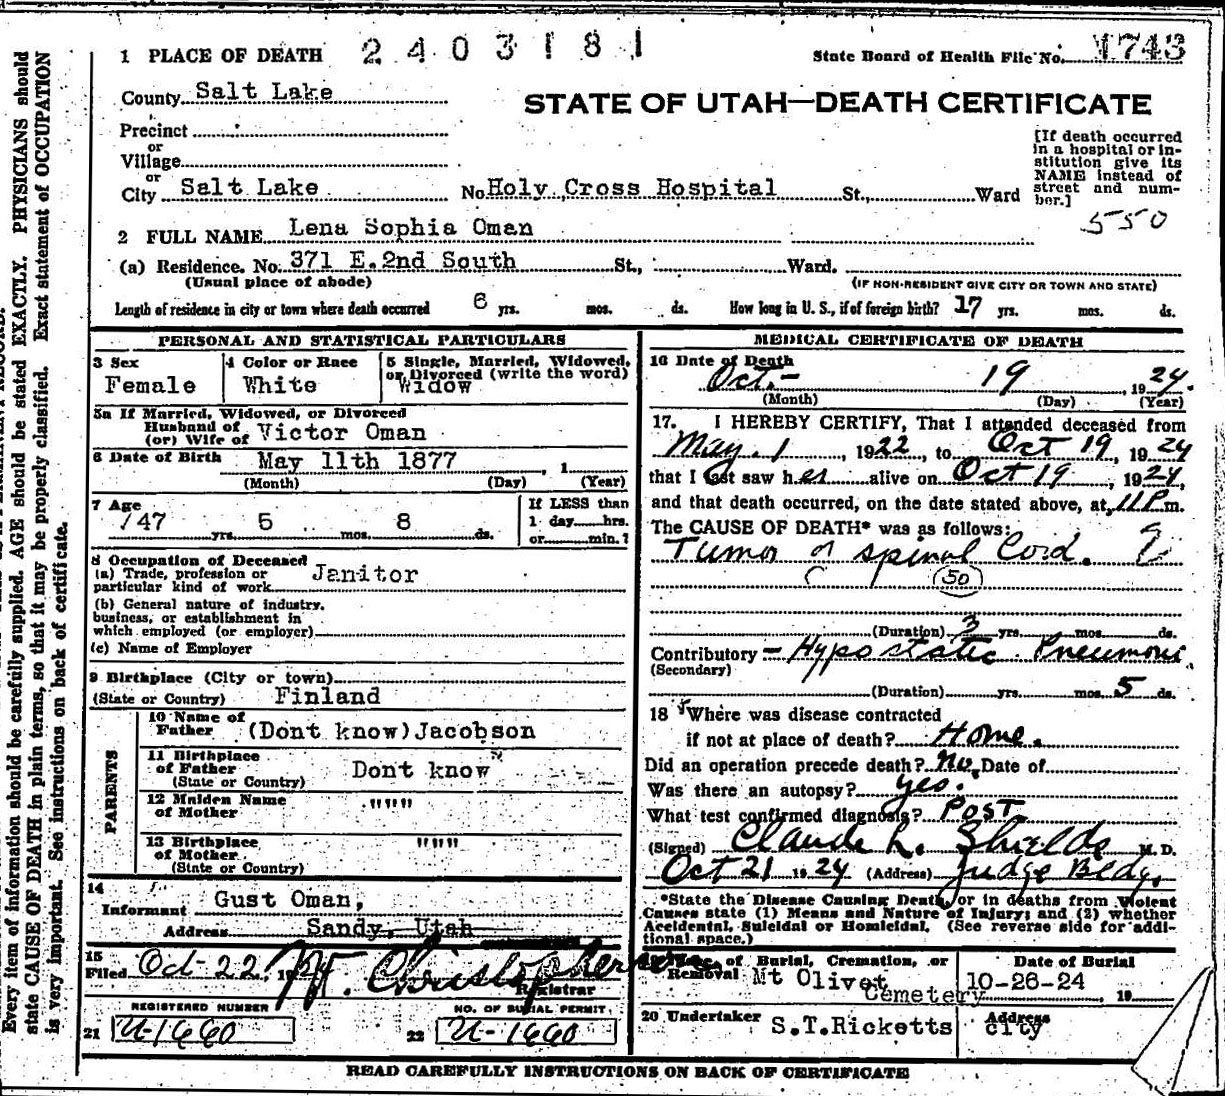 1 PLACE OF DEATH 2403181 State Board of Health File No. 1743
County Salt Lake
STATE OF UTAH—DEATH CERTIFICATE
Precinct
or
Village
or
City Salt Lake No Holy Cross Hospital St., Ward
[If death occurred
in a hospital or in-
stitution give its
NAME instead of
street and num-
ber.]
550
2 FULL NAME Lena Sophia Oman
(a) Residence. No. 371 E. 2nd South St., Ward.
(Usual place of abode) (IF NON-RESIDENT GIVE CITY OR TOWN AND STATE)
Length of residence in city or town where death occurred 6 yrs. mos. ds. How long in U. S., if of foreign birth? 17 yrs. mos. ds.
PERSONAL AND STATISTICAL PARTICULARS
3 Sex
Female
4 Color or Race
White
5 Single, Married, Widowed,
or Divorced (write the word)
Widow
5a If Married, Widowed, or Divorced
Husband of
(or) Wife of Victor Oman
6 Date of Birth May 11th 1877 , 1
(Month) (Day) (Year)
7 Age
47 yrs. 5 mos. 8 ds.
If LESS than
1 day hrs.
or min.?
8 Occupation of Deceased
(a) Trade, profession or
particular kind of work Janitor
(b) General nature of industry,
business, or establishment in
which employed (or employer)
(c) Name of Employer
9 Birthplace (City or town)
(State or Country) Finland
PARENTS
10 Name of
Father (Dont know) Jacobson
11 Birthplace
of Father Dont know
(State or Country)
12 Maiden Name
of Mother """"
13 Birthplace
of Mother """"
(State or Country)
14
Informant Gust Oman,
Address Sandy, Utah
15
Filed Oct-22, 19
Registrar
REGISTERED NUMBER
21 U-1660
NO. OF BURIAL PERMIT
22 U-1660
MEDICAL CERTIFICATE OF DEATH
16 Date of Death
Oct.- 19 1924.
(Month) (Day) (Year)
17. I HEREBY CERTIFY, That I attended deceased from
May. 1, 1922, to Oct 19, 1924
that I last saw her alive on Oct 19, 1924,
and that death occurred, on the date stated above, at 11 P m.
The CAUSE OF DEATH* was as follows:
Tumor of spinal Cord.
50
(Duration) 3 yrs. mos. ds.
Contributory - Hypostatic Pneumoni
(Secondary)
(Duration) yrs. mos. 5 ds.
18 Where was disease contracted
if not at place of death? Home.
Did an operation precede death? No, Date of
Was there an autopsy? Yes.
What test confirmed diagnosis? Post
(Signed) Claude L. Shields M. D.
Oct 21 1924 (Address) Judge Bldg,
*State the Disease Causing Death, or in deaths from Violent
Causes state (1) Means and Nature of Injury; and (2) whether
Accidental, Suicidal or Homicidal. (See reverse side for addi-
tional space.)
of Burial, Cremation, or
Removal Mt Olivet
Cemetery
Date of Burial
10-26-24 , 19
20 Undertaker S.T.Ricketts
Address
city
READ CAREFULLY INSTRUCTIONS ON BACK OF CERTIFICATE
Every item of information should be carefully supplied. AGE should be stated EXACTLY. PHYSICIANS should
state CAUSE OF DEATH in plain terms, so that it may be properly classified. Exact statement of OCCUPATION
is very important. See instructions on back of certificate.